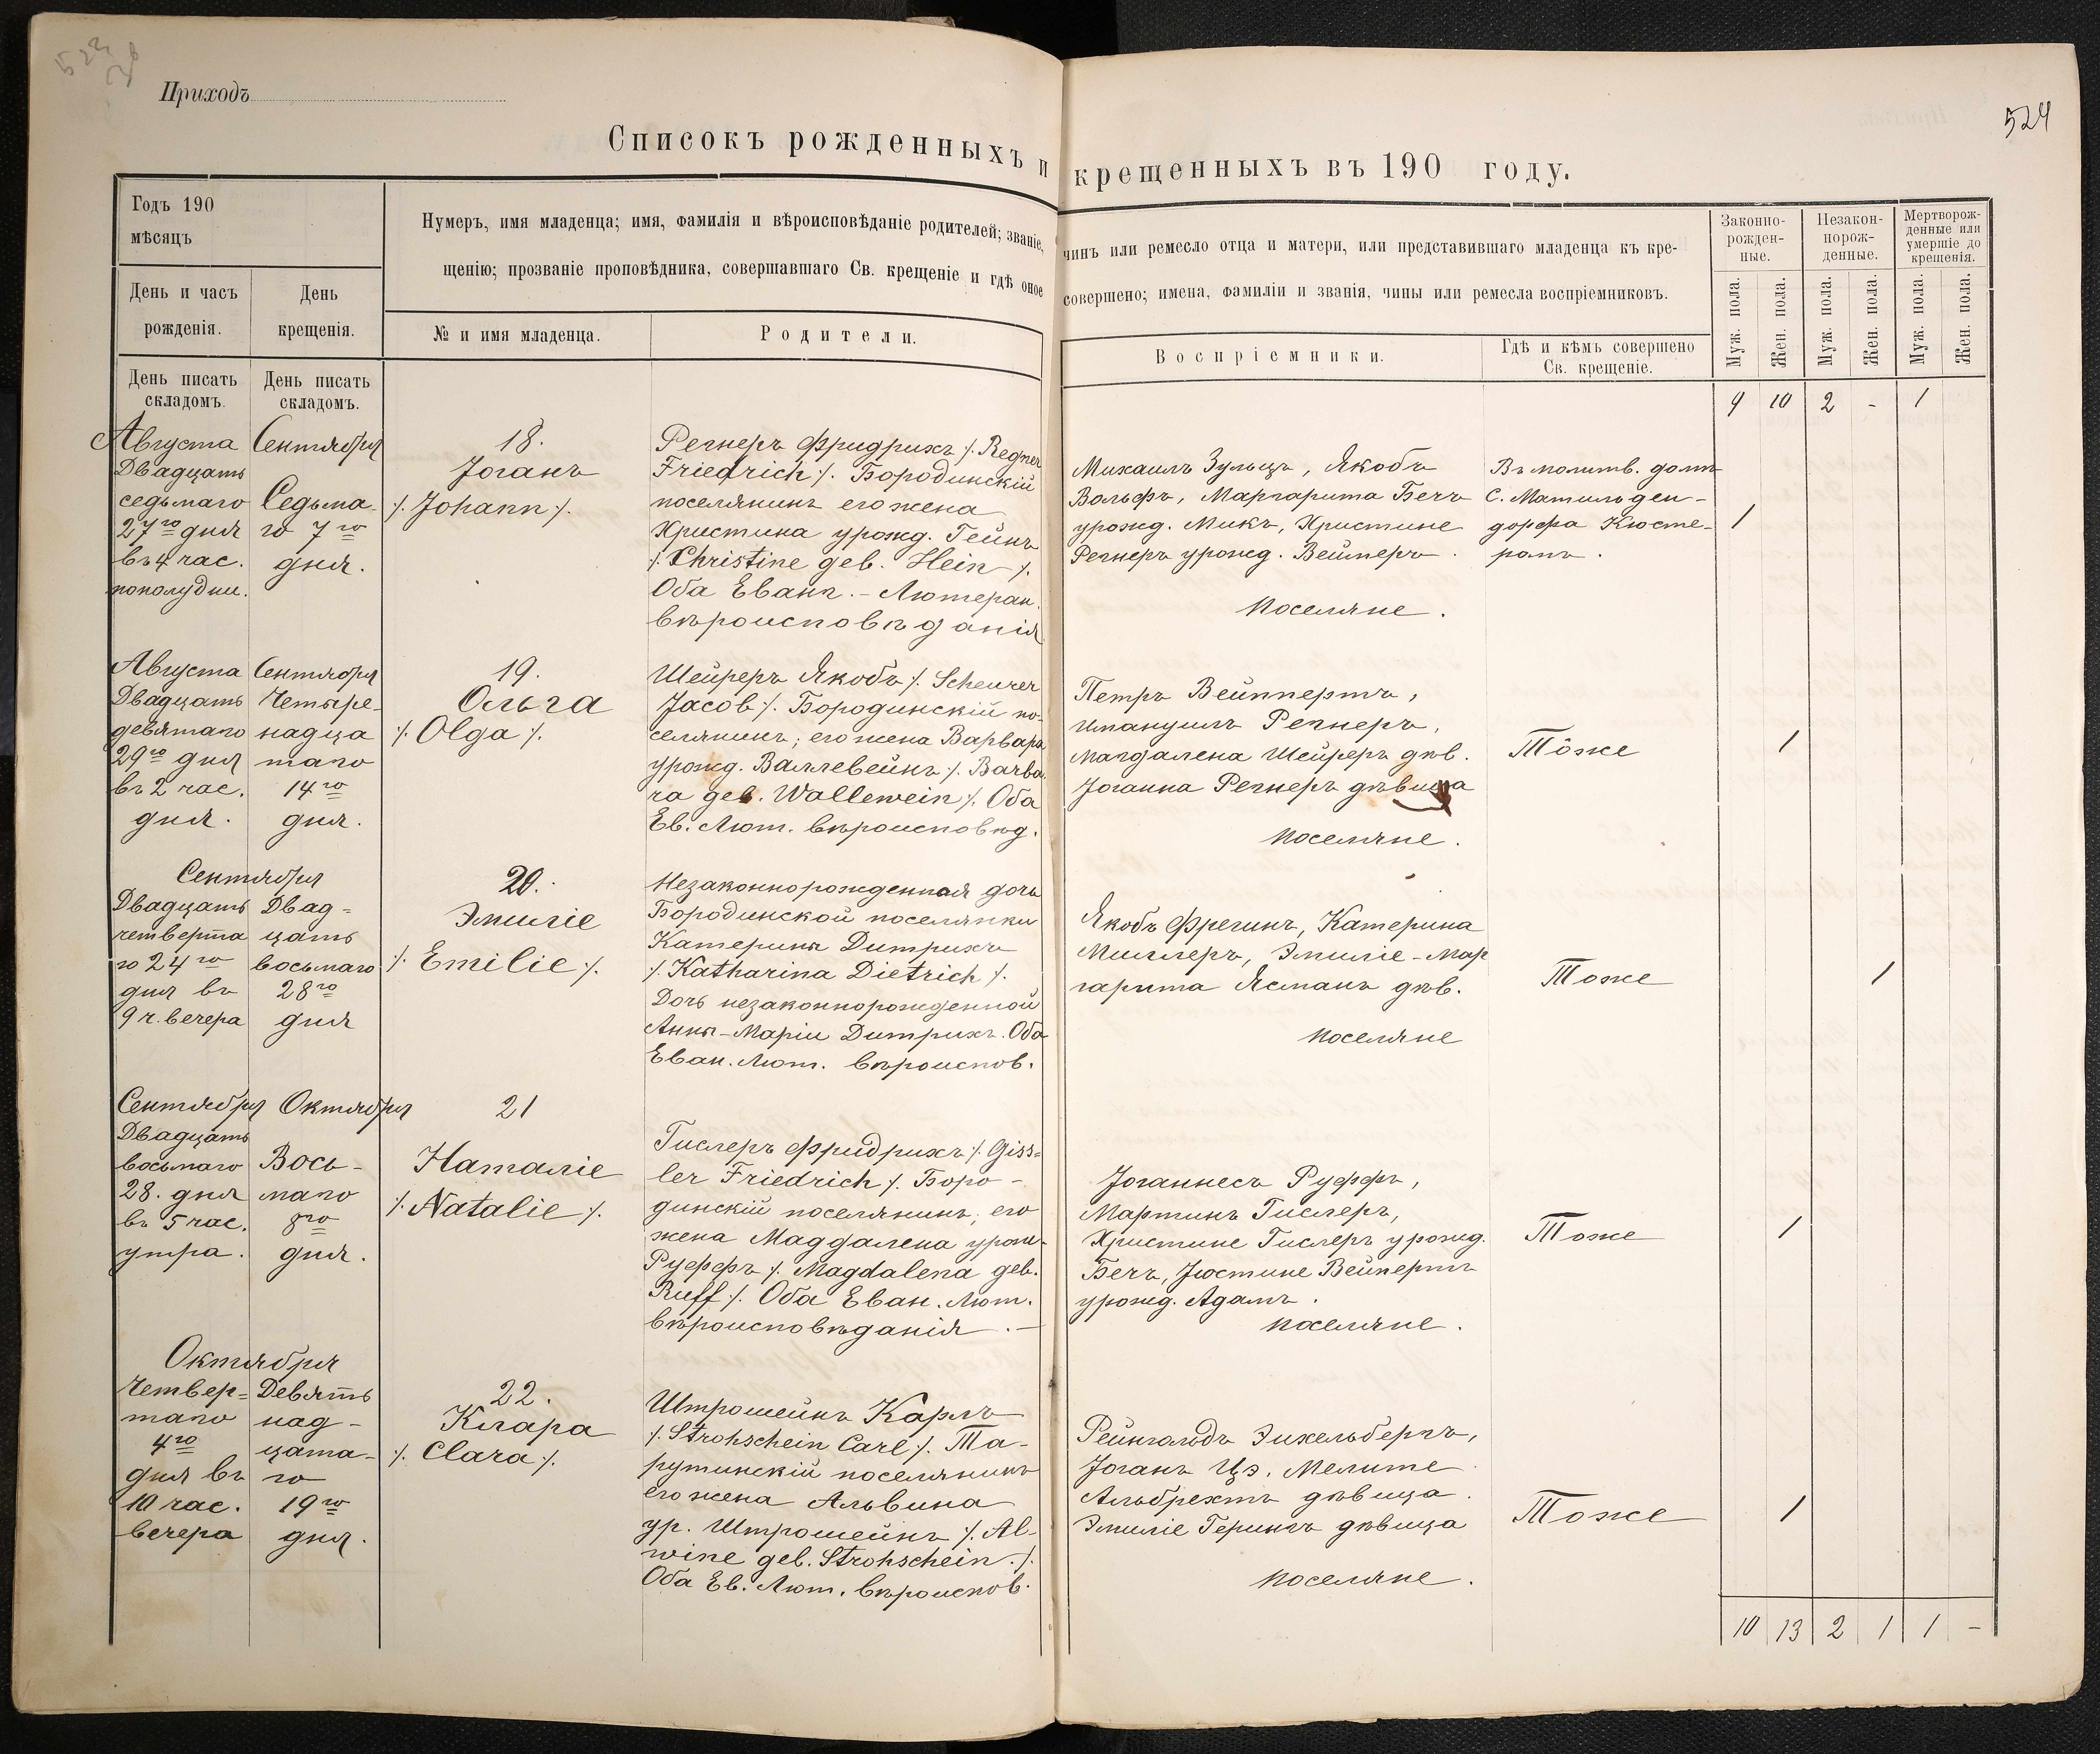 523
об
Приходъ
524
Списокъ рожденныхъ и крещенныхъ въ 190 году.
Годъ 190
мѣсяцъ
День и часъ
рожденія.
День
крещенія.
Нумеръ, имя младенца; имя, фамилія и вѣроисповѣданіе родителей; званіе, чинъ или ремесло отца и матери, или представившаго младенца къ кре-
щенію; прозваніе проповѣдника, совершавшаго Св. крещеніе и гдѣ оное совершено; имена, фамиліи и званія, чины или ремесла воспріемниковъ.
№ и имя младенца.
Родители.
Воспріемники.
Гдѣ и кѣмъ совершено
Св. крещеніе.
Законно-
рожден-
ные.
Незакон-
норож-
денные.
Мертворож-
денные или
умершіе до
крещенія.
Муж. пола.
Жен. пола.
Муж. пола.
Жен. пола.
Муж. пола.
Жен. пола.
День писать
складомъ.
День писать
складомъ.
9 10 2 - 1
Августа
Двадцать
седьмаго
27го дня
въ 4 час.
пополудни.
Сентября
Седьма-
го 7го
дня.
18.
Іоганъ
/. Johann /.
Регнеръ Фридрихъ /. Regner
Friedrich /. Бородинскій
поселянинъ его жена
Христина урожд. Гейнъ
/. Christine geb. Hein /.
Оба Еванг. - Лютеран.
вѣроисповѣданія
Михаилъ Зульцъ, Якобъ
Вольфъ, Маргарита Бечъ
урожд. Микъ, Христине
Регнеръ урожд. Веймеръ.
поселяне.
Въ молитв. домѣ
С. Матильден-
дорфа Кюсте-
ромъ.
1
Августа
Двадцать
девятаго
29го дня
въ 2 час.
дня.
Сентября
Четыре-
надца
таго
14го
дня.
19.
Ольга
/. Olga /.
Шейреръ Якобъ /. Scheurer
Jacob /. Бородинскій по-
селянинъ; его жена Варвара
урожд. Валлевейнъ /. Barba-
ra geb. Wallewein /. Оба
Ев. Лют. вѣроисповѣд.
Петръ Вейппертъ,
Имануилъ Регнеръ,
Магдалена Шейреръ дѣв.
Іоганна Регнеръ дѣвица
поселяне.
Тоже
1
Сентября
Двадцать
четверта
го 24го
дня въ
9 ч. вечера
Двад=
цать
восьмаго
28го
дня
20.
Эмиліе
/. Emilie /.
Незаконнорожденная дочь
Бородинской поселянки
Катерины Дитрихъ
/. Katharina Dietrich /.
Дочь незаконнорожденной
Анны-Маріи Дитрихъ. Оба
Еван. Лют. вѣроиспов.
Якобъ Фрегинъ, Катерина
Миллеръ, Эмиліе-Мар
гарита Ясманъ дѣв.
поселяне
Тоже
1
Сентября
Двадцать
восьмаго
28. дня
въ 5 час.
утра.
Октября
Вось-
маго
8го
дня.
21
Наталіе
/. Natalie /.
Гислеръ Фридрихъ /. Giss=
ler Friedrich /. Боро-
динскій поселянинъ; его
жена Магдалена урож-
Руффъ /. Magdalena geb.
Ruff /. Оба Еван. Лют.
вѣроисповѣданія. -
Іоганнесъ Руффъ,
Мартинъ Гислеръ,
Христине Гислеръ урожд.
Бечъ, Юстине Вейпертъ
урожд. Адамъ.
поселяне.
Тоже
1
Октября
Четвер=
таго
4го
дня въ
10 час.
вечера
Девять
над-
цата-
го
19го
дня.
22.
Клара
/. Clara /.
Штрошейнъ Карлъ
/. Strohschein Carl /. Та-
рутинскій поселянинъ
его жена Альвина
ур. Штрошейнъ /. Al-
wine geb. Strohschein. /.
Оба Ев. Лют. вѣроиспов.
Рейнгольдъ Эихельбергъ,
Іоганъ Цэ. Мелите
Альбрехтъ дѣвица.
Эмиліе Герингъ дѣвица
поселяне.
Тоже
1
10 13 2 1 1 -